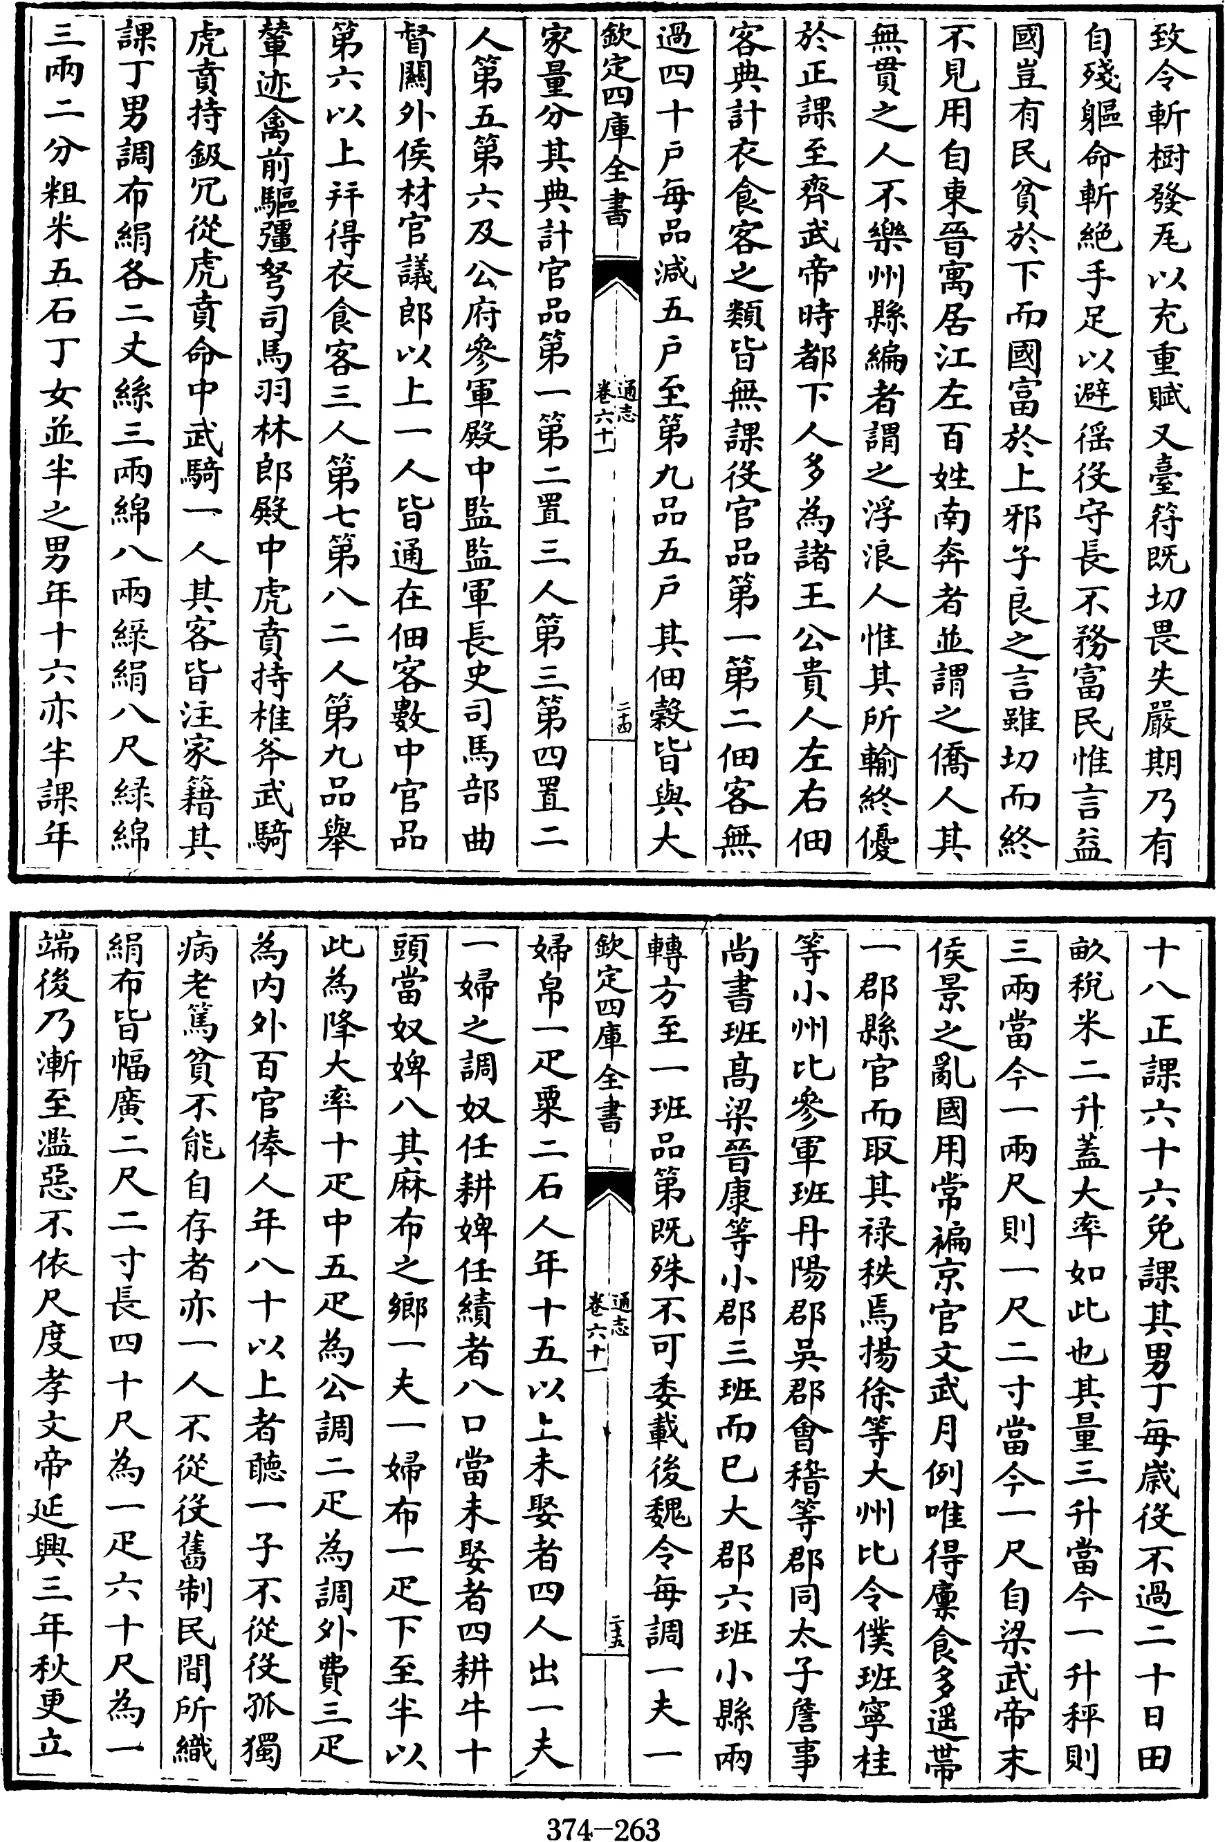 致令斬樹發瓦以充重賦又臺符既切畏失嚴期乃有
自殘軀命斬絶手足以避徭役守長不務富民惟言益
國豈有民貧於下而國富於上邪子良之言雖切而終
不見用自東晉寓居江左百姓南奔者並謂之僑人其
無貫之人不樂州縣編者謂之浮浪人惟其所輸終優
於正課至齊武帝時都下人多為諸王公貴人左右佃
客典計衣食客之類皆無課役官品第一第二佃客無
過四十户每品減五户至第九品五户其佃穀皆與大
欽定四庫全書
通志
卷六十一
二十四
家量分其典計官品第一第二置三人第三第四置二
人第五第六及公府參軍殿中監監軍長史司馬部曲
督關外侯材官議郎以上一人皆通在佃客數中官品
第六以上并得衣食客三人第七第八二人第九品舉
輦迹禽前驅彊弩司馬羽林郎殿中虎賁持椎斧武騎
虎賁持鈒冗從虎賁命中武騎一人其客皆注家籍其
課丁男調布絹各二丈絲三兩綿八兩綠絹八尺綠綿
三兩二分粗米五石丁女並半之男年十六亦半課年
十八正課六十六免課其男丁每嵗役不過二十日田
畝税米二升蓋大率如此也其量三升當今一升秤則
三兩當今一兩尺則一尺二寸當今一尺自梁武帝末
侯景之亂國用常褊京官文武月例唯得廩食多遥帶
一郡縣官而取其禄秩焉揚徐等大州比令僕班寧桂
等小州比參軍班丹陽郡吳郡會稽等郡同太子詹事
尚書班髙梁晉康等小郡三班而已大郡六班小縣兩
轉方至一班品第既殊不可委載後魏令每調一夫一
欽定四庫全書
通志
卷六十一
二十五
婦帛一疋粟二石人年十五以上未娶者四人出一夫
一婦之調奴任耕婢任績者八口當未娶者四耕牛十
頭當奴婢八其麻布之鄉一夫一婦布一疋下至半以
此為降大率十疋中五疋為公調二疋為調外費三疋
為内外百官俸人年八十以上者聽一子不從役孤獨
病老篤貧不能自存者亦一人不從役舊制民間所織
絹布皆幅廣二尺二寸長四十尺為一疋六十尺為一
端後乃漸至濫惡不依尺度孝文帝延興三年秋更立
374-263